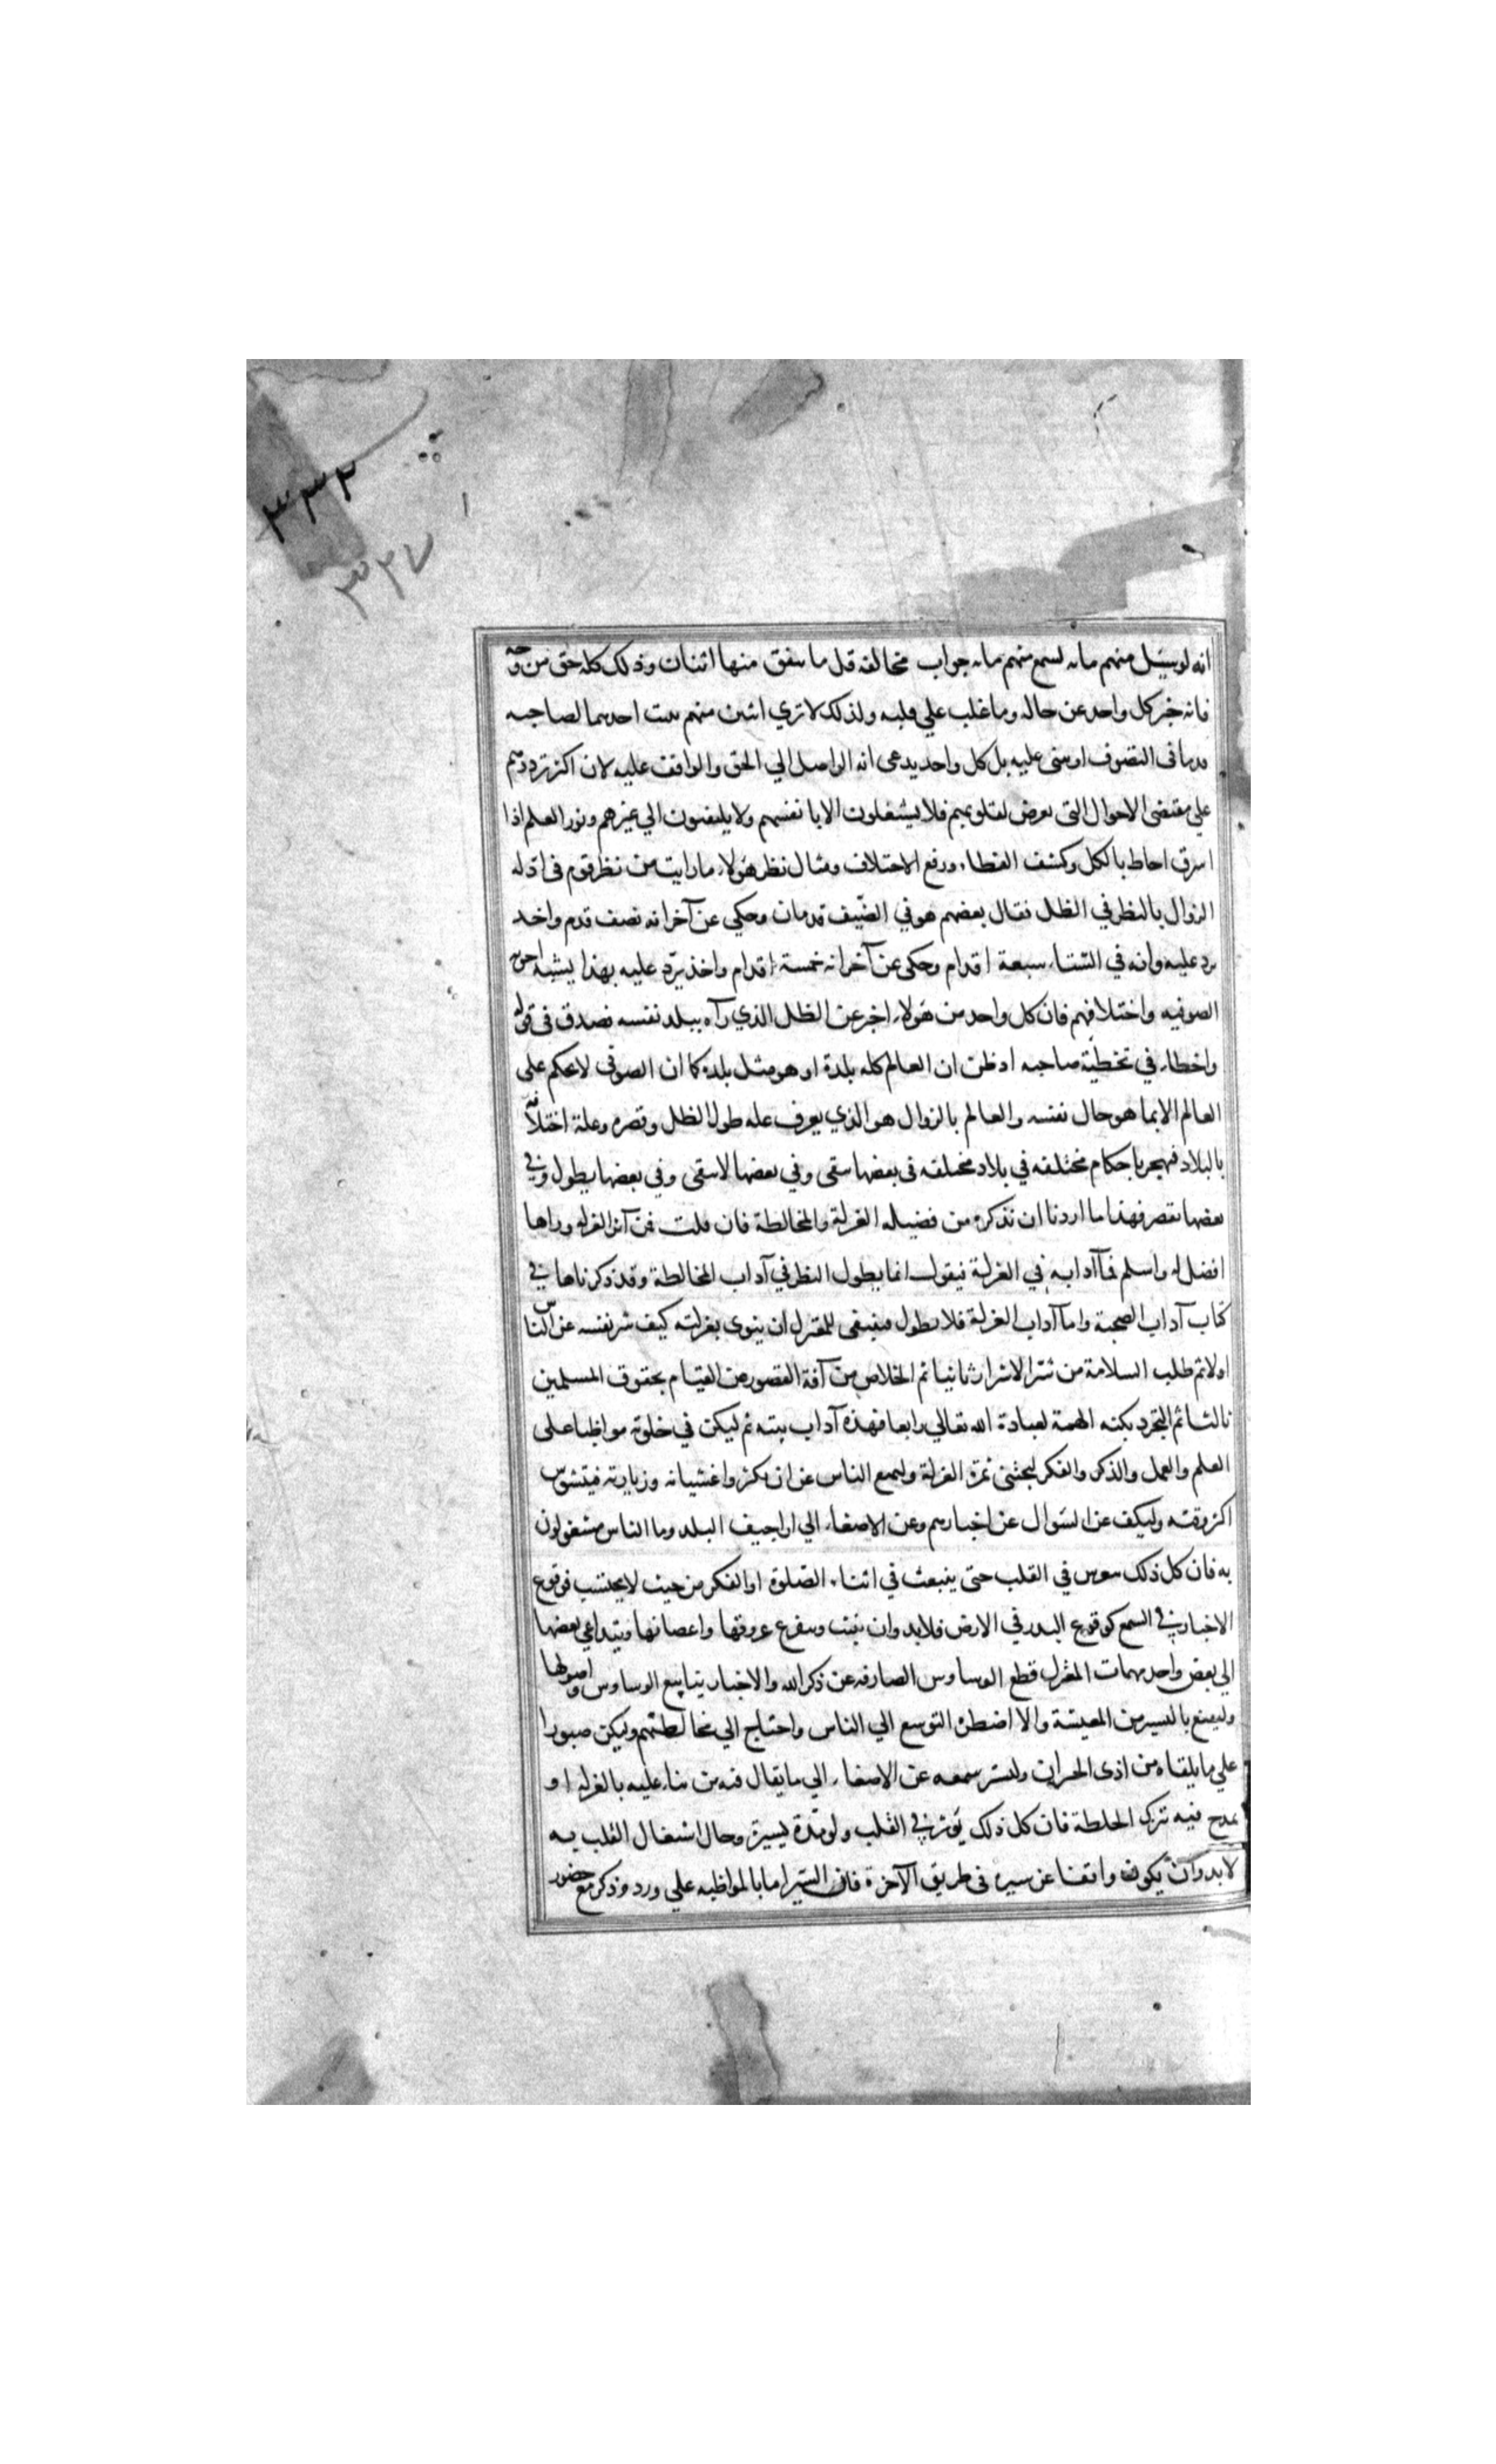 ٣٣٢
٣٢٧
انه لو سئل منهم مايه لسمع منهم مايه جواب مخالفه قل ما يتفق منها اثنان وذلك كله حق من وجه
فانه خبر كل واحد عن حاله وما غلب علي قلبه ولذلك لا تري اثنين منهم يثبت احدهما لصاحبه
قدما في التصوف او يثنى عليه بل كل واحد يدعى انه الواصل الي الحق والواقف عليه لان اكثر ترددهم
علي مقتضى الاحوال التى تعرض لقلوبهم فلا يشتغلون الا بانفسهم ولا يلتفتون الي غيرهم ونور العلم اذا
اشرق احاط بالكل وكشف الغطاء ورفع الاختلاف ومثال نظر هولاء ما رايت من نظر قوم في ادله
الزوال بالنظر في الظل فقال بعضهم هو في الصّيف قدمان وحكي عن آخر انه نصف قدم واخد
يرد عليه وانه في الشتاء سبعة اقدام وحكى عن آخر انه خمسة اقدام واخذ يرّد عليه بهذا يشبه اجوبه
الصوفيه واختلافهم فان كل واحد من هولاء اخبر عن الظل الذي رآه ببلد نفسه فصدق في قوله
واخطاء في تخطيئة صاحبه اذ ظن ان العالم كله بلدة او هو مثل بلده كما ان الصوفى لا يحكم على
العالم الا بما هو حال نفسه والعالم بالزوال هو الذي يعرف عله طول الظل وقصره وعلة اختلافه
بالبلاد فيخبر باحكام مختلفه في بلاد مختلفه في بعضها يبقى وفي بعضها لا يبقى وفي بعضها يطول وفي
بعضها يقصر فهذا ما اردنا ان نذكره من فضيله العزلة والمخالطة فان قلت فمن آثر العزله وراها
افضل له واسلم فما آدابه في العزلة فيقول انما يطول النظر في آداب المخالطة وقد ذكرناها في
كتاب آداب الصحبة واما آداب العزلة فلا يطول فينبغى للمعتزل ان ينوى بعزلته كيف شر نفسه عن الناس
اولا ثم طلب السلامة من شر الاشرار ثانيا ثم الخلاص من آفة القصور عن القيام بحقوق المسلمين
ثالثا ثم التجرد بكنه الهمة لعبادة الله تعالي رابعا فهذه آداب نيته ثم ليكن في خلوته مواظبا على
العلم والعمل والذكر والفكر ليجتنى ثمرة العزلة وليمنع الناس عن ان يكثروا غشيانه وزيارته فيتشوش
اكثر وقته وليكف عن السّوال عن اخبارهم وعن الاصغاء الي اراجيف البلد وما الناس مشغولون
به فان كل ذلك ينغرس في القلب حتى ينبعث في اثناء الصّلوة او الفكر من حيث لا يحتسب فوقوع
الاخبار في السمع كوقوع البدر في الارض فلا بد وان ينبت ويتفرع عروقها واغصانها ويتداعي بعضها
الي بعض واحد مهمات المعتزل قطع الوساوس الصارفه عن ذكر الله والاخبار ينابيع الوساوس واصولها
وليقنع باليسير من المعيشة والا اضطره التوسع الي الناس واحتاج الي مخالطتهم وليكن صبورا
علي ما يلقاه من اذى الجيران وليسد سمعه عن الاصغاء الي ما يقال فيه من ثناء عليه بالعزله او
قدح فيه بترك الخلطة فان كل ذلك يؤثر في القلب ولو مّدة يسيرة وحال اشتغال القلب به
لا بد وان يكون واقفا عن سيره في طريق الآخرة فان السّير اما بالمواظبه علي ورد وذكر مع حضور